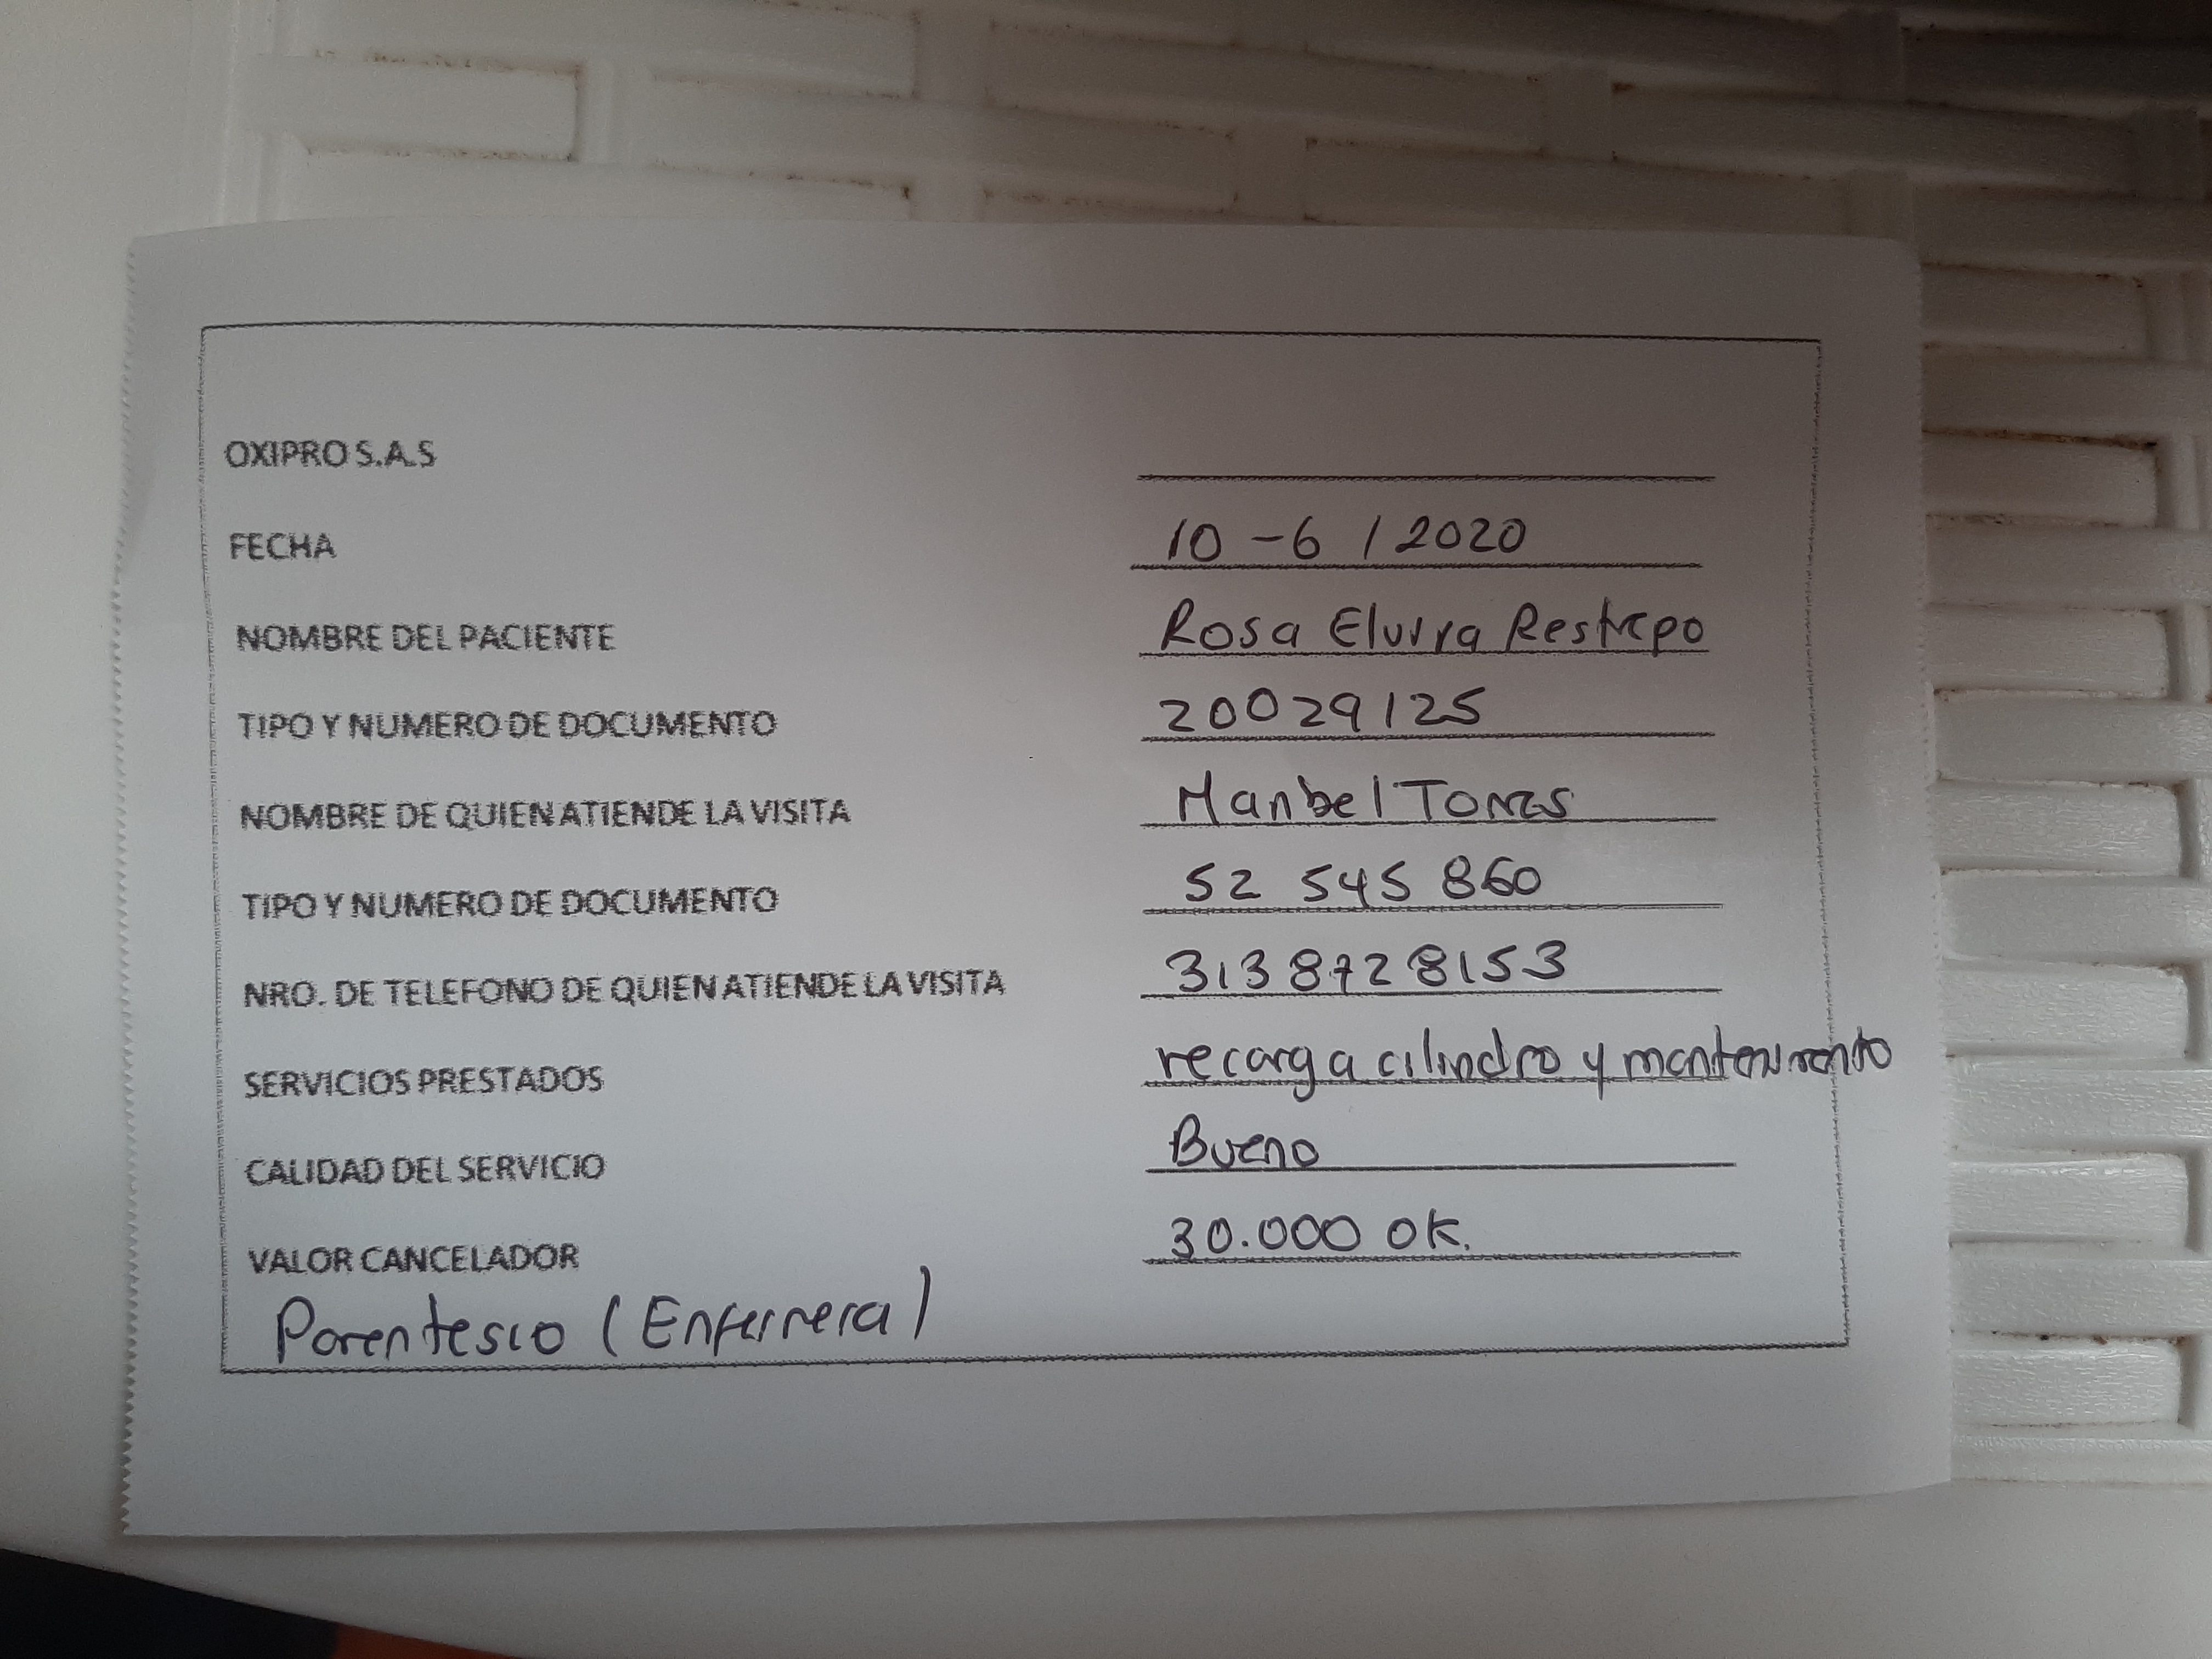 OXIPRO S.A.S
FECHA 10 - 6 / 2020
NOMBRE DEL PACIENTE Rosa Elvira Restrepo
TIPO Y NUMERO DE DOCUMENTO 20029125
NOMBRE DE QUIEN ATIENDE LA VISITA Maribel Torres
TIPO Y NUMERO DE DOCUMENTO 52 545 860
NRO. DE TELEFONO DE QUIEN ATIENDE LA VISITA 3138728153
SERVICIOS PRESTADOS recarga cilindro y mantenimiento
CALIDAD DEL SERVICIO Bueno
VALOR CANCELADOR 30.000 OK.
Parentesco (Enfermera)